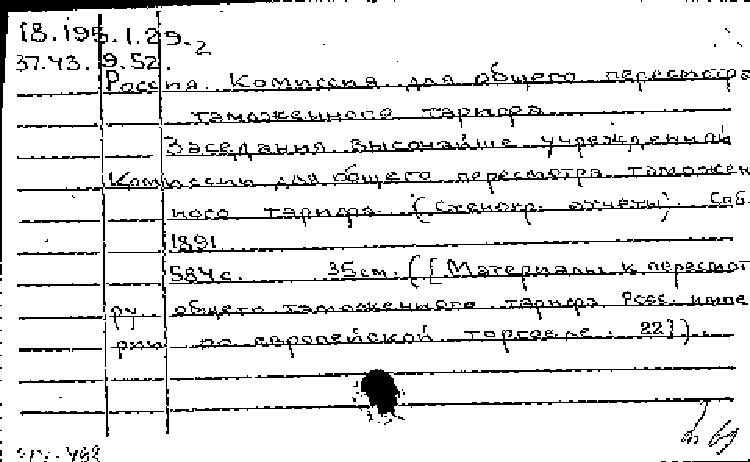 18.195.1.29.2
37.43.9.52.
Россия. Комиссия для общего пересмотра
таможенного тарифа
Заседания высочайше учрежденной
Комиссии для общего пересмотра таможен
ного тарифа (Стеногр. отчеты). Спб.
1891
584 с. 35 см. ([Материалы к пересмот
ру общего таможенного тарифа Росс. импе
рии по европейской торговле. 22]).